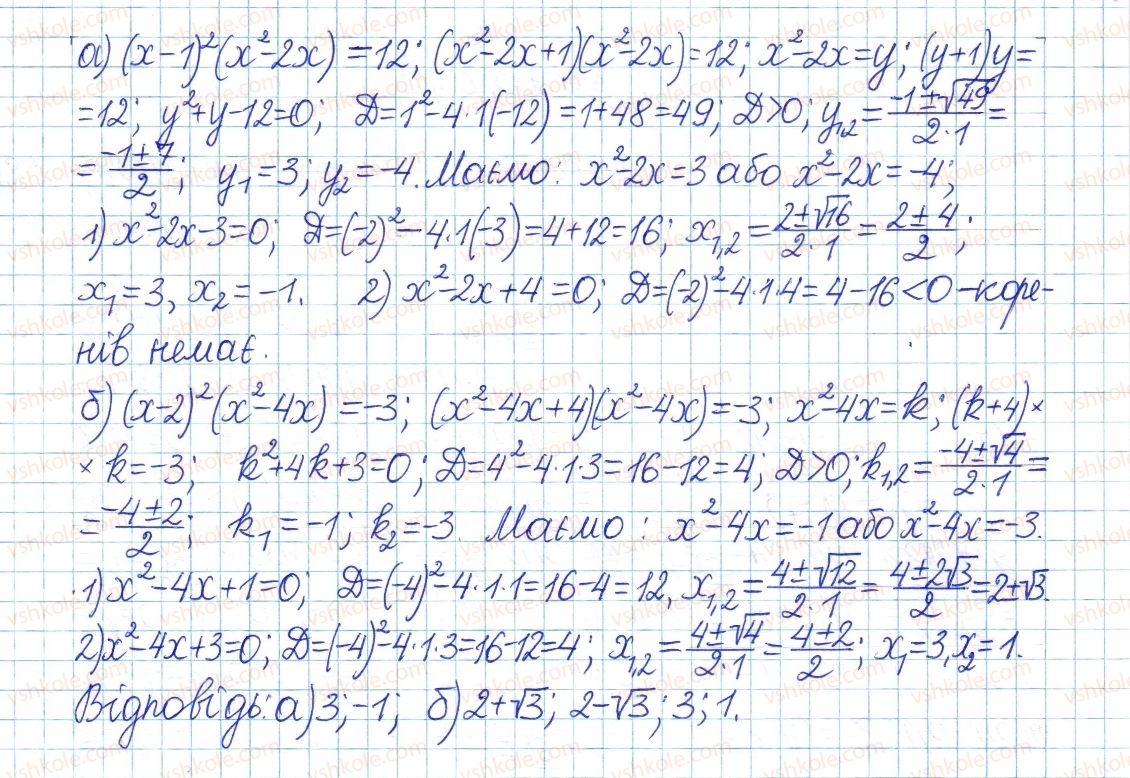 а) (x-1)²(x²-2x) = 12; (x²-2x+1)(x²-2x) = 12; x²-2x = y; (y+1)y =
= 12; y²+y-12=0; D=1²-4·1(-12) = 1+48=49; D>0; y₁,₂ = (-1±√49)/(2·1) =
= (-1±7)/2; y₁ = 3; y₂ = -4. Маємо: x²-2x=3 або x²-2x = -4;
1) x²-2x-3=0; D=(-2)²-4·1(-3)=4+12=16; x₁,₂ = (2±√16)/(2·1) = (2±4)/2;
x₁ = 3, x₂ = -1. 2) x²-2x+4=0; D=(-2)²-4·1·4=4-16<0 – коре-
нів немає.
б) (x-2)²(x²-4x) = -3; (x²-4x+4)(x²-4x) = -3; x²-4x = k; (k+4)×
× k = -3; k²+4k+3=0; D=4²-4·1·3=16-12=4; D>0; k₁,₂ = (-4±√4)/(2·1) =
= (-4±2)/2; k₁ = -1; k₂ = -3. Маємо: x²-4x=-1 або x²-4x=-3.
1) x²-4x+1=0; D=(-4)²-4·1·1=16-4=12, x₁,₂ = (4±√12)/(2·1) = (4±2√3)/2 = 2±√3.
2) x²-4x+3=0; D=(-4)²-4·1·3=16-12=4; x₁,₂ = (4±√4)/(2·1) = (4±2)/2; x₁=3, x₂=1.
Відповідь: а) 3; -1; б) 2+√3; 2-√3; 3; 1.
vshkole.com